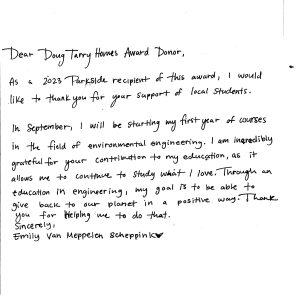 Dear Doug Tarry Homes Award Donor,
As a 2023 Parkside recipient of this award, I would
like to thank you for your support of local students.
In September, I will be starting my first year of courses
in the field of environmental engineering. I am incredibly
grateful for your contribution to my education, as it
allows me to continue to study what I love. Through an
education in engineering, my goal is to be able to
give back to our planet in a positive way. Thank
you for helping me to do that.
Sincerely,
Emily Van Meppelen Scheppink